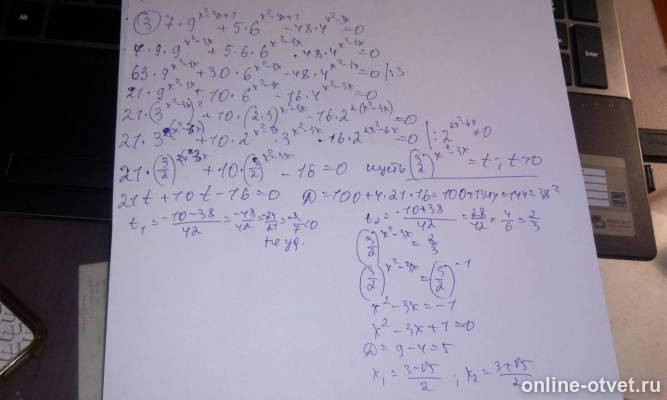 ③ 7·9^(x²-3x+1) + 5·6^(x²-3x+1) - 48·4^(x²-3x) = 0
7·9·9^(x²-3x) + 5·6·6^(x²-3x) - 48·4^(x²-3x) = 0
63·9^(x²-3x) + 30·6^(x²-3x) - 48·4^(x²-3x) = 0 |:3
21·9^(x²-3x) + 10·6^(x²-3x) - 16·4^(x²-3x) = 0
21·(3^(x²-3x))² + 10·(2·3)^(x²-3x) - 16·2^(2(x²-3x)) = 0
21·3^(2(x²-3x)) + 10·2^(x²-3x)·3^(x²-3x) - 16·2^(2x²-6x) = 0 |:2^(2x²-6x) ≠ 0
21·(3/2)^(2(x²-3x)) + 10·(3/2)^(x²-3x) - 16 = 0 пусть (3/2)^(x²-3x) = t; t>0
21t + 10t - 16 = 0 D = 100 + 4·21·16 = 100 + 1344 = 1444 = 38²
t₁ = (-10-38)/42 = -48/42 = -24/21 = -8/7 < 0 t₂ = (-10+38)/42 = 28/42 = 4/6 = 2/3
не уд.
(3/2)^(x²-3x) = 2/3
(3/2)^(x²-3x) = (3/2)^(-1)
x² - 3x = -1
x² - 3x + 1 = 0
D = 9 - 4 = 5
x₁ = (3-√5)/2 ; x₂ = (3+√5)/2
online-otvet.ru